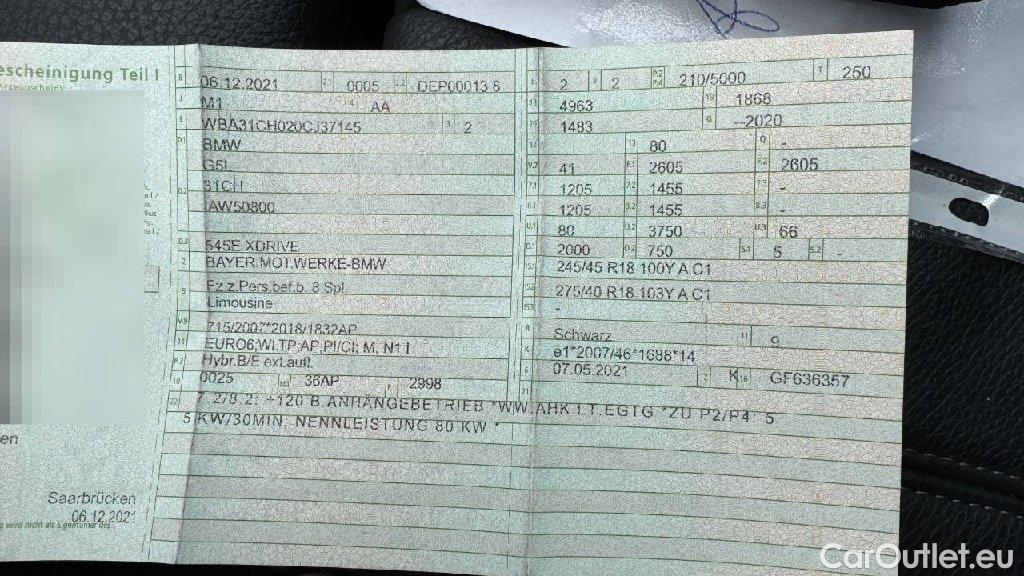 escheinigung Teil I
06.12.2021 0005 DEP00013 6 2 2 210/5000 T 250
M1 AA 4963 1868
WBA31CH020CJ37145 2 1483 --2020
BMW 80 -
G5L 41 2605 2605
31CH 1205 1455 -
AW50800 1205 1455 -
80 3750 66
545E XDRIVE 2000 750 5 -
BAYER.MOT.WERKE-BMW 245/45 R18 100Y A C1
Fz.z.Pers.bef.b. 8 Spl. 275/40 R18 103Y A C1
Limousine -
715/2007*2018/1832AP Schwarz 9
EURO6;WLTP;AP,PI/CI; M, N1 I e1*2007/46*1688*14
Hybr.B/E ext.aufl. 07.05.2021 K GF636357
0025 36AP 2998
+120 B ANHÄNGEBETRIEB *WW.AHK LT.EGTG *ZU P2/P4: 5
5 KW/30MIN; NENNLEISTUNG 80 KW *
en
Saarbrücken
06.12.2021
wird nicht als Eigentümer des
CarOutlet.eu